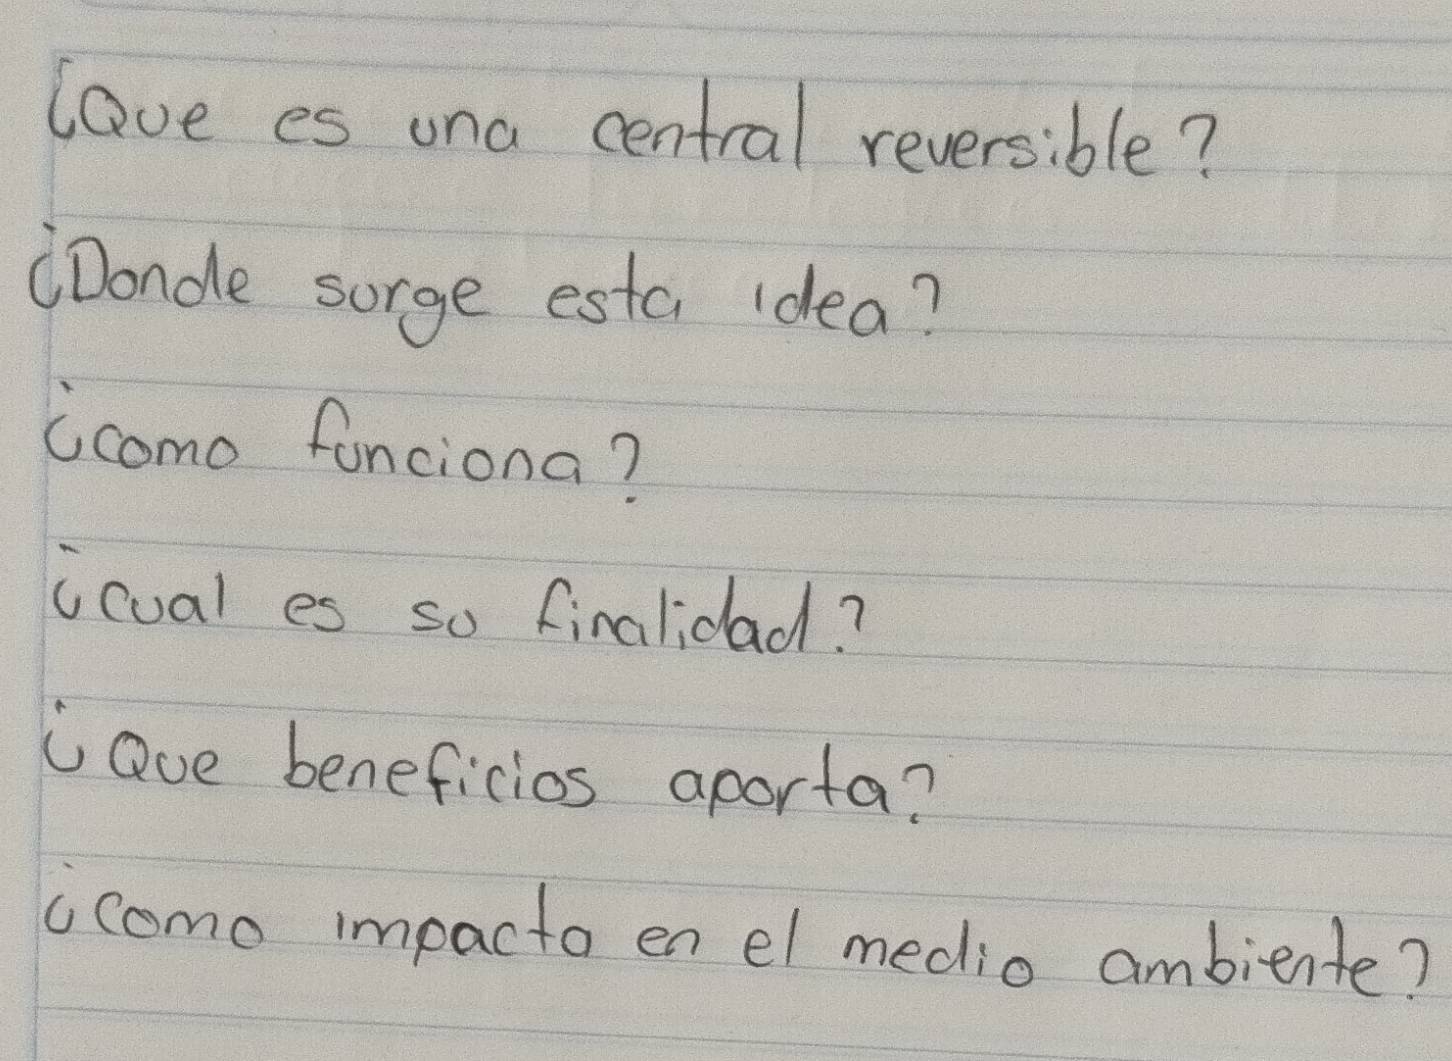 ¿Que es una central reversible?
¿Donde surge esta idea?
¿como funciona?
¿cual es su finalidad?
¿Que beneficios aporta?
¿como impacta en el medio ambiente?